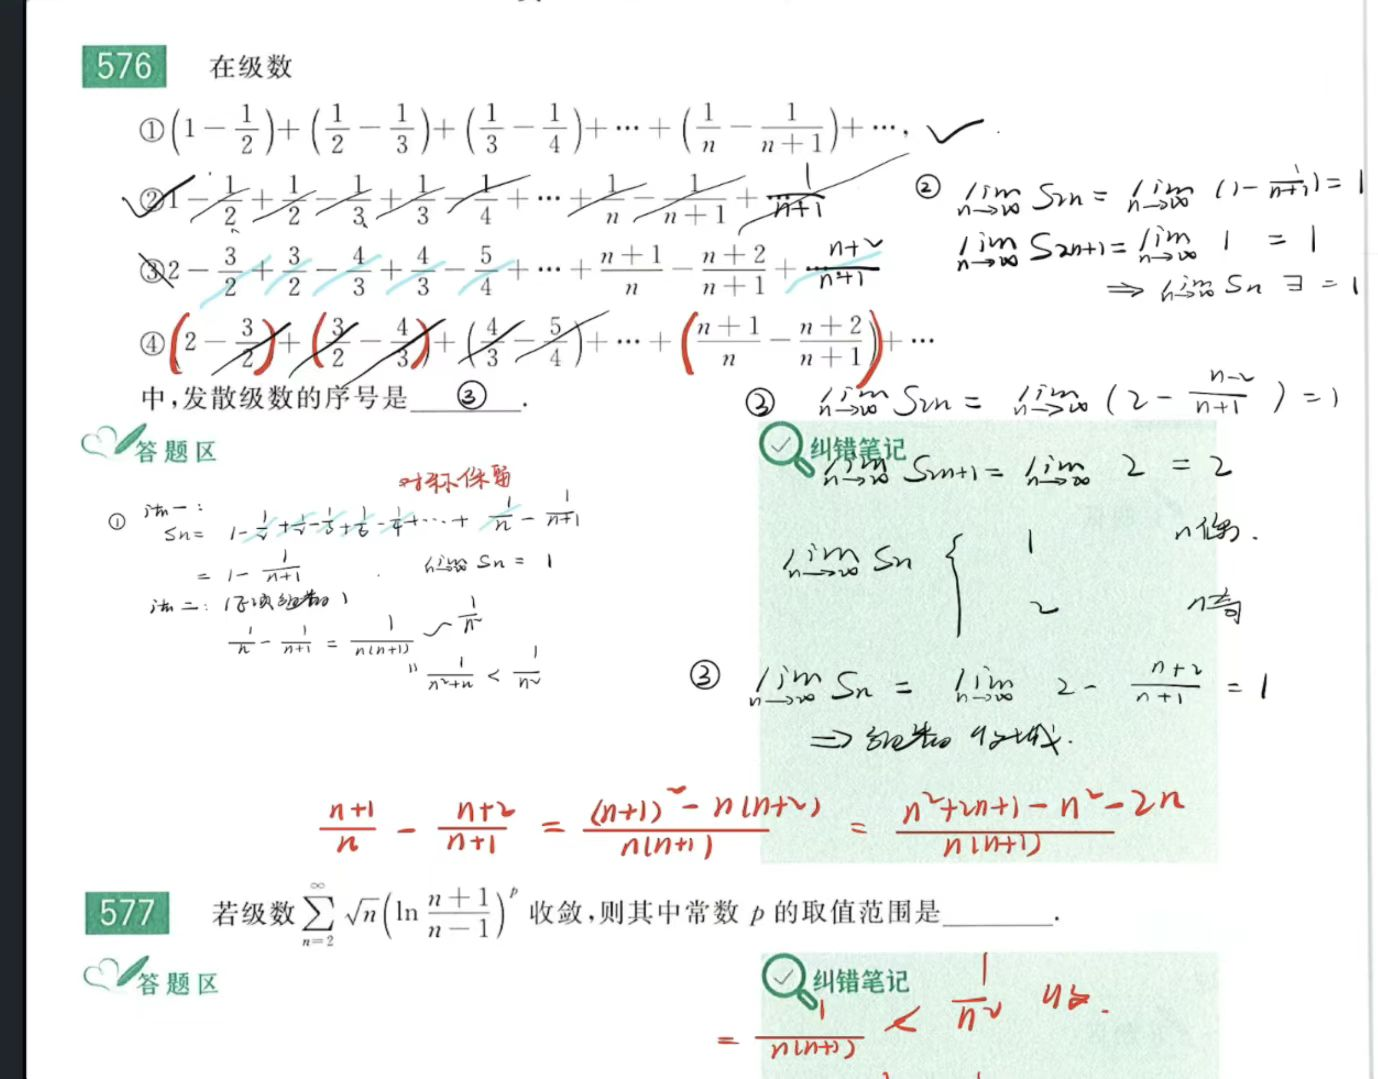 576 在级数
①(1 - 1/2) + (1/2 - 1/3) + (1/3 - 1/4) + ⋯ + (1/n - 1/(n+1)) + ⋯, ✓
②1 - 1/2 + 1/2 - 1/3 + 1/3 - 1/4 + ⋯ + 1/n - 1/(n+1) + 1/(n+1)
③2 - 3/2 + 3/2 - 4/3 + 4/3 - 5/4 + ⋯ + (n+1)/n - (n+2)/(n+1) + (n+2)/(n+1)
④(2 - 3/2) + (3/2 - 4/3) + (4/3 - 5/4) + ⋯ + ((n+1)/n - (n+2)/(n+1)) + ⋯
中,发散级数的序号是 ③ .
② lim n→∞ S2n = lim n→∞ (1 - 1/(n+1)) = 1
lim n→∞ S2n+1 = lim n→∞ 1 = 1
⇒ lim n→∞ Sn ∃ = 1
③ lim n→∞ S2n = lim n→∞ (2 - (n+2)/(n+1)) = 1
答题区
纠错笔记
lim n→∞ S2n+1 = lim n→∞ 2 = 2
lim n→∞ Sn { 1 n偶.
2 n奇
对称保留
① 法一:
Sn = 1 - 1/2 + 1/2 - 1/3 + 1/3 - 1/4 + ⋯ + 1/n - 1/(n+1)
= 1 - 1/(n+1) lim n→∞ Sn = 1
法二: (正项级数)
1/n - 1/(n+1) = 1/(n(n+1)) ~ 1/n²
1/(n²+n) < 1/n²
③ lim n→∞ Sn = lim n→∞ 2 - (n+2)/(n+1) = 1
⇒ 级数收敛.
(n+1)/n - (n+2)/(n+1) = ((n+1)² - n(n+2))/(n(n+1)) = (n²+2n+1-n²-2n)/(n(n+1))
577 若级数 ∑ n=2 ∞ √n (ln (n+1)/(n-1))^p 收敛,则其中常数 p 的取值范围是 .
答题区
纠错笔记
= 1/(n(n+1)) < 1/n² 收.